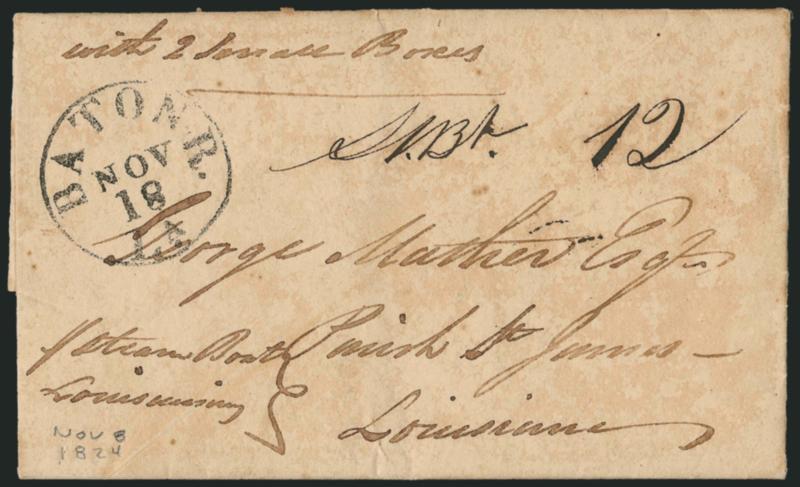 with 2 Small Boxes
BATON R.
NOV
18
LA
St.Bt. 12
George Mather Esqr
Steam Boat
Parish St James
Louisiana
NOV 8
1824